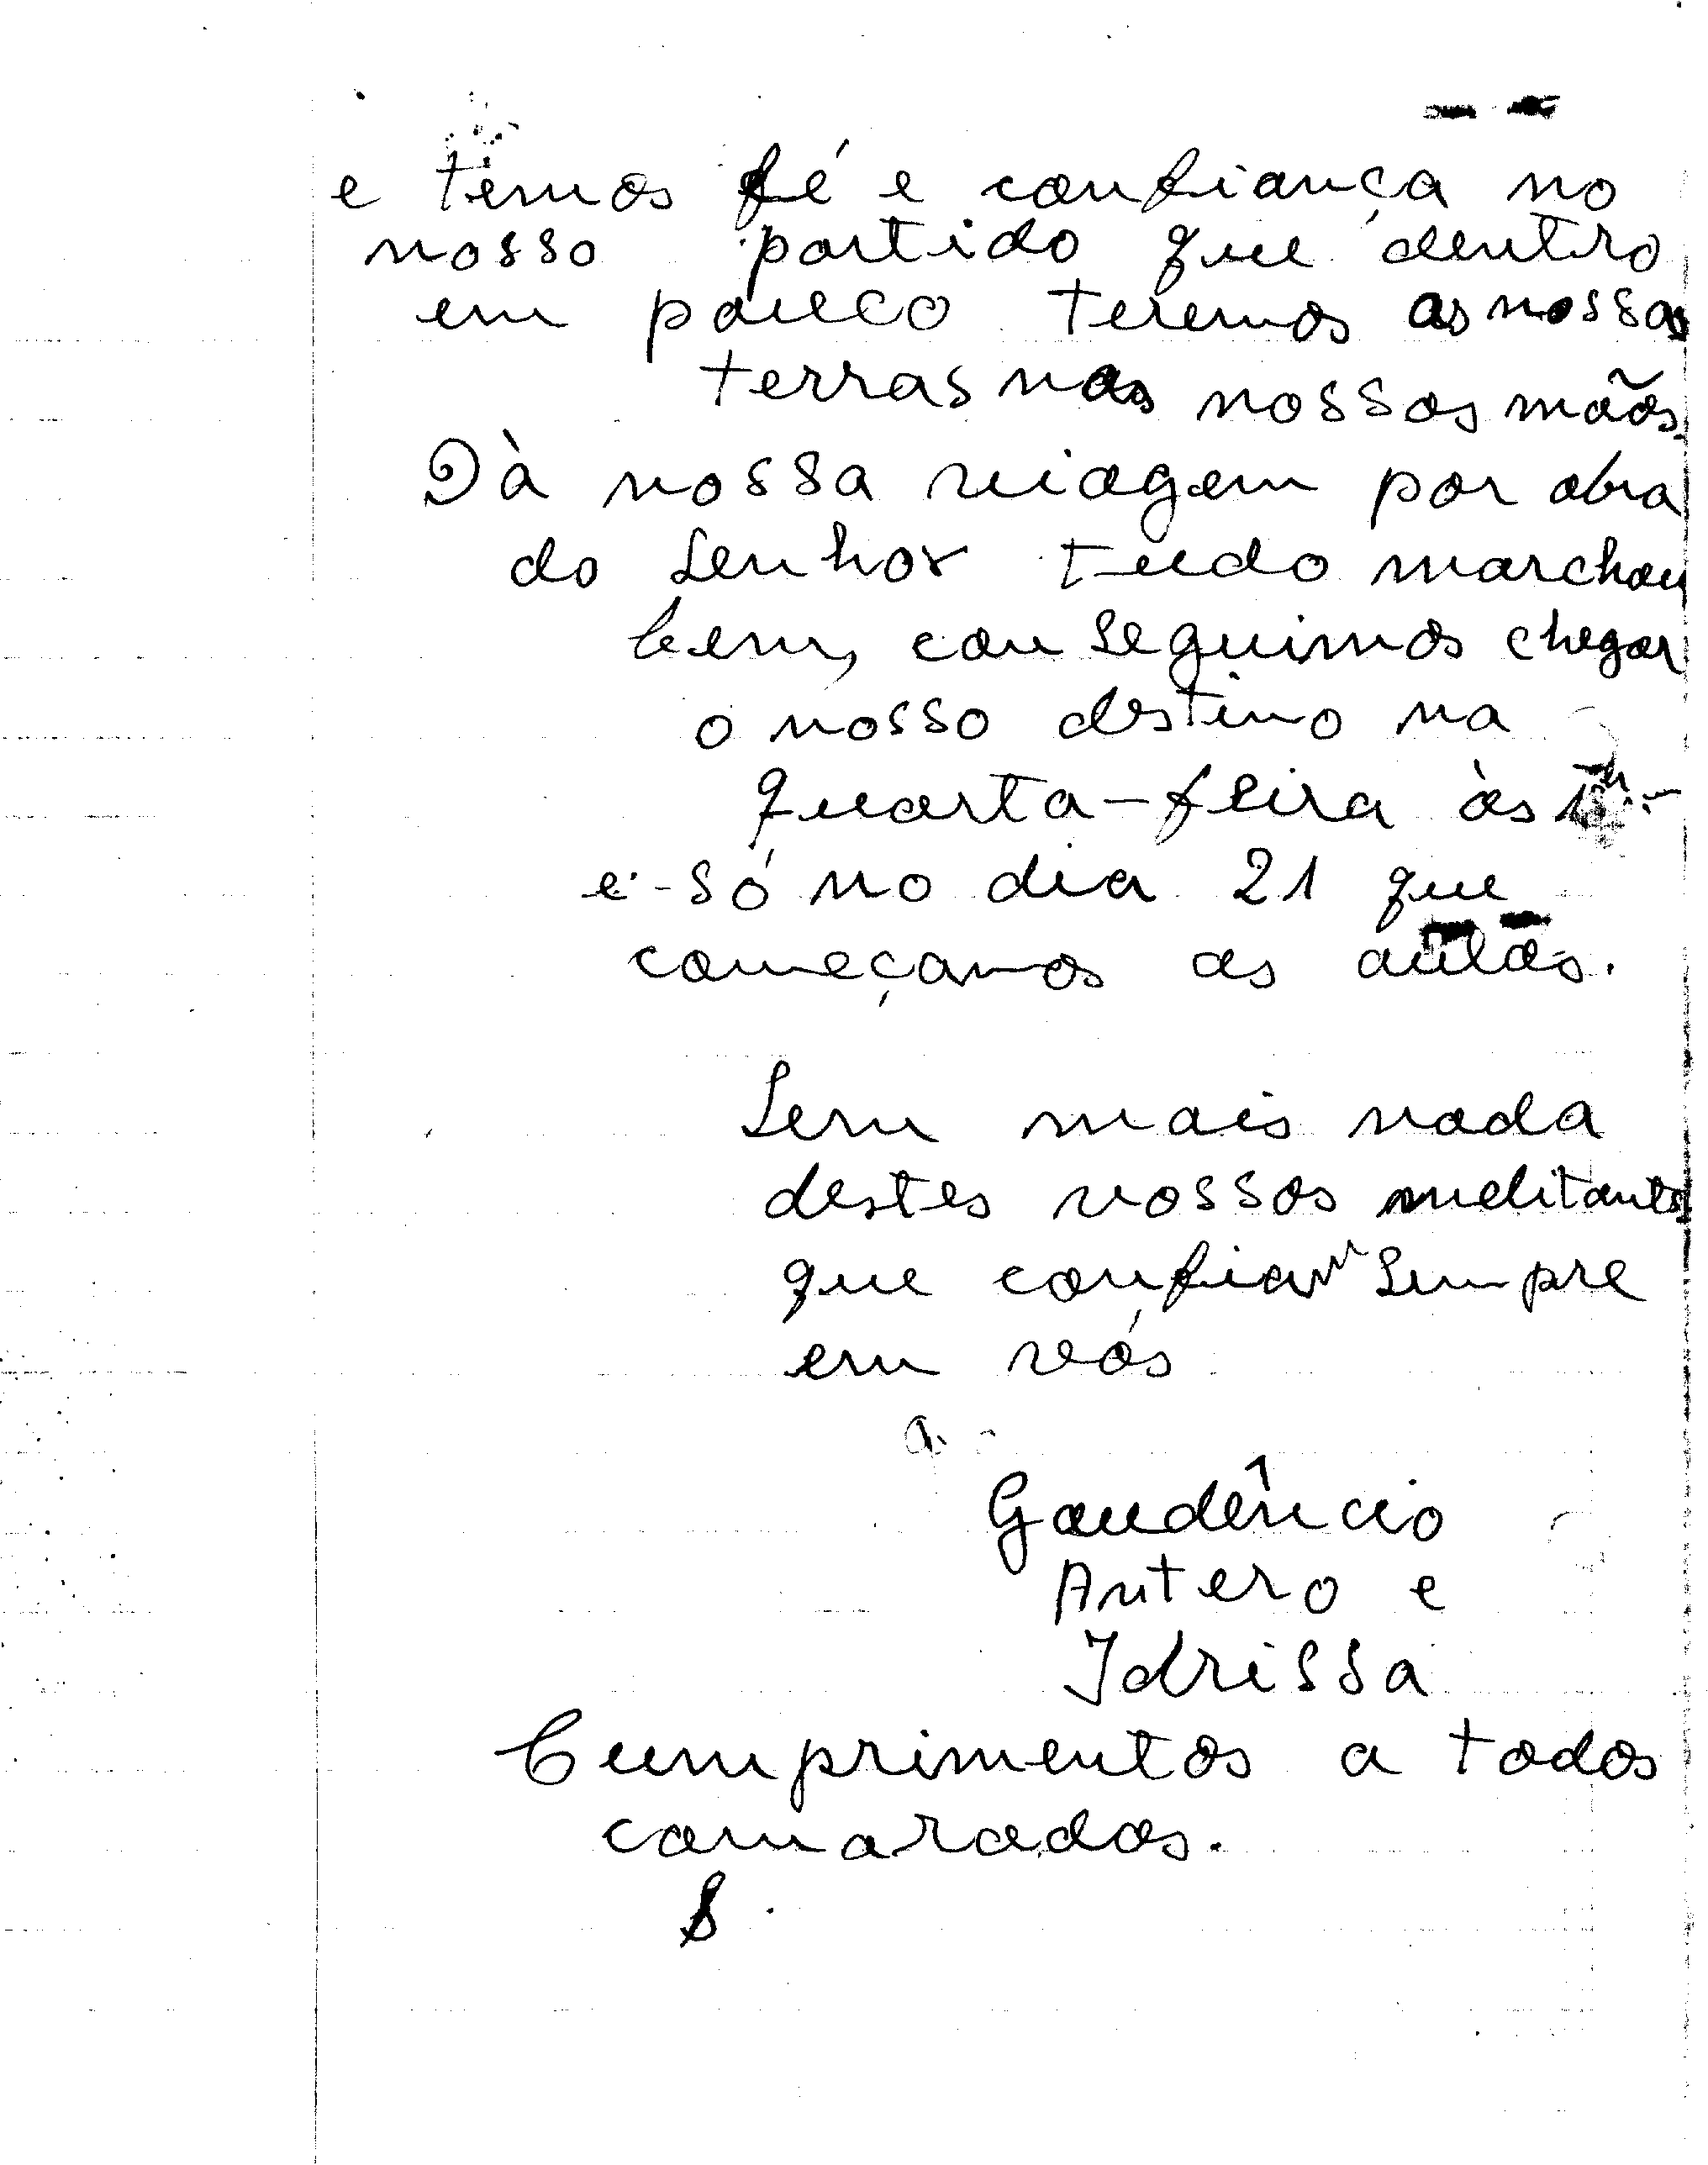 e temos fé e confiança no
nosso partido que dentro
em pouco teremos as nossas
terras nas nossas mãos.
Dà nossa viagem por obra
do Senhor tudo marchou
bem, conseguimos chegar
o nosso destino na
quarta-feira às
e só no dia 21 que
começamos as aulas.
Sem mais nada
destes vossos melitantes
que confiam sempre
em vós
Gaudêncio
Antero e
Idrissa
Cumprimentos a todos
camaradas.